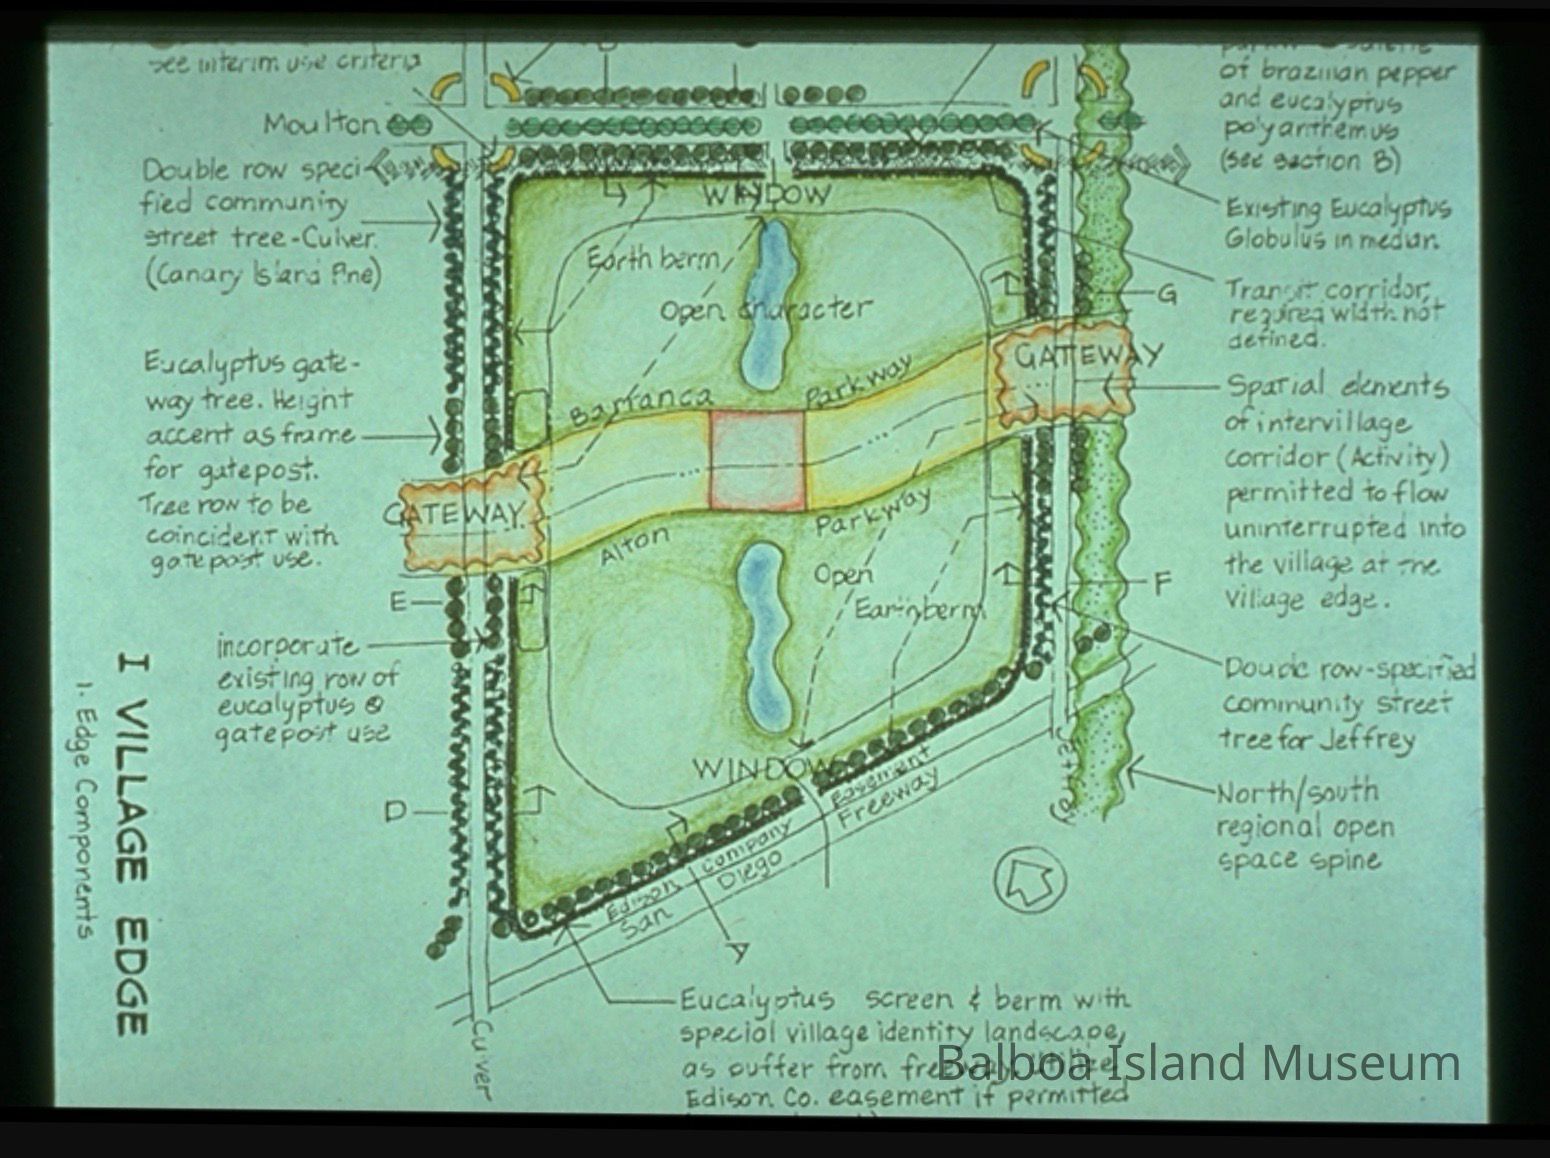 see interim use criteria
Moulton
Double row speci-
fied community
street tree-Culver.
(Canary Island Pine)
Eucalyptus gate-
way tree. Height
accent as frame
for gatepost.
Tree row to be
coincident with
gatepost use.
E
incorporate
existing row of
eucalyptus @
gatepost use
D
I VILLAGE EDGE
1. Edge Components
WINDOW
Earth berm
Open character
Barranca Parkway
GATEWAY
GATEWAY
Alton Parkway
Open
Earth berm
WINDOW
Edison Company Easement
San Diego Freeway
A
Culver
of brazilian pepper
and eucalyptus
polyanthemus
(see section B)
Existing Eucalyptus
Globulus in median.
Transit corridor,
required width not
defined.
G
Spatial elements
of intervillage
corridor (Activity)
permitted to flow
uninterrupted into
the village at the
village edge.
F
Double row-specified
community street
tree for Jeffrey
North/south
regional open
space spine
Eucalyptus screen & berm with
special village identity landscape,
as buffer from freeway. Utilize
Edison Co. easement if permitted
Balboa Island Museum